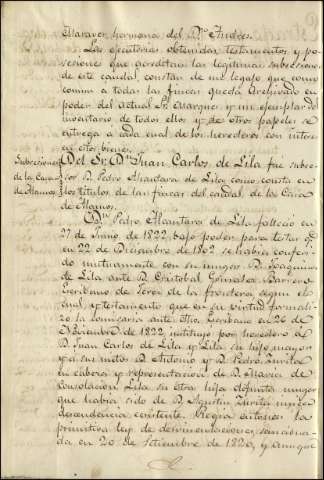 Maraver hermana del Dn. Andres.
Las ejecutorias obtenidas, testamentos y po-
sesiones que acreditan las legitimas subcesiones
de este caudal, constan de un legajo que como
comun a todas las fincas queda Archivado en
poder del actual Sr. Marques y un ejemplar del
inventario de todos ellos y de otros papeles se
entrega a cada cual de los herederos con interes
en estos bienes.
Subcesiones
de la Casa
de Alamos
Del Sr. Dn. Juan Carlos de Lila fue subce-
sor D. Pedro Alcantara de Lila como consta en
los titulos de las fincas del caudal de la Casa
de Alamos.
Dn. Pedro Alcantara de Lila fallecio en
27 de Junio de 1822, bajo poder para testar qe.
en 22 de Diciembre de 1802 se habia conferi-
do mutuamente con su muger Da. Joaquina
de Lila ante D. Cristobal Gonzalez Barrero
Escribano de Jerez de la frontera, segun el
cual, y testamento que en su virtud formali-
zo la comisaria ante otro Escribano en 26 de
Noviembre de 1822 instituyó por heredero á
D. Juan Carlos de Lila y Lila su hijo mayor
y a su nieto D. Antonio y D. Pedro Zurita
en cabeza y representacion de Da. Maria de
Consolacion Lila su otra hija difunta muger
que habia sido de D. Agustin Zurita unica
descendencia existente. Regia entonces la
primitiva ley de desvinculaciones, sanciona-
da en 20 de Setiembre de 1820, y aunque